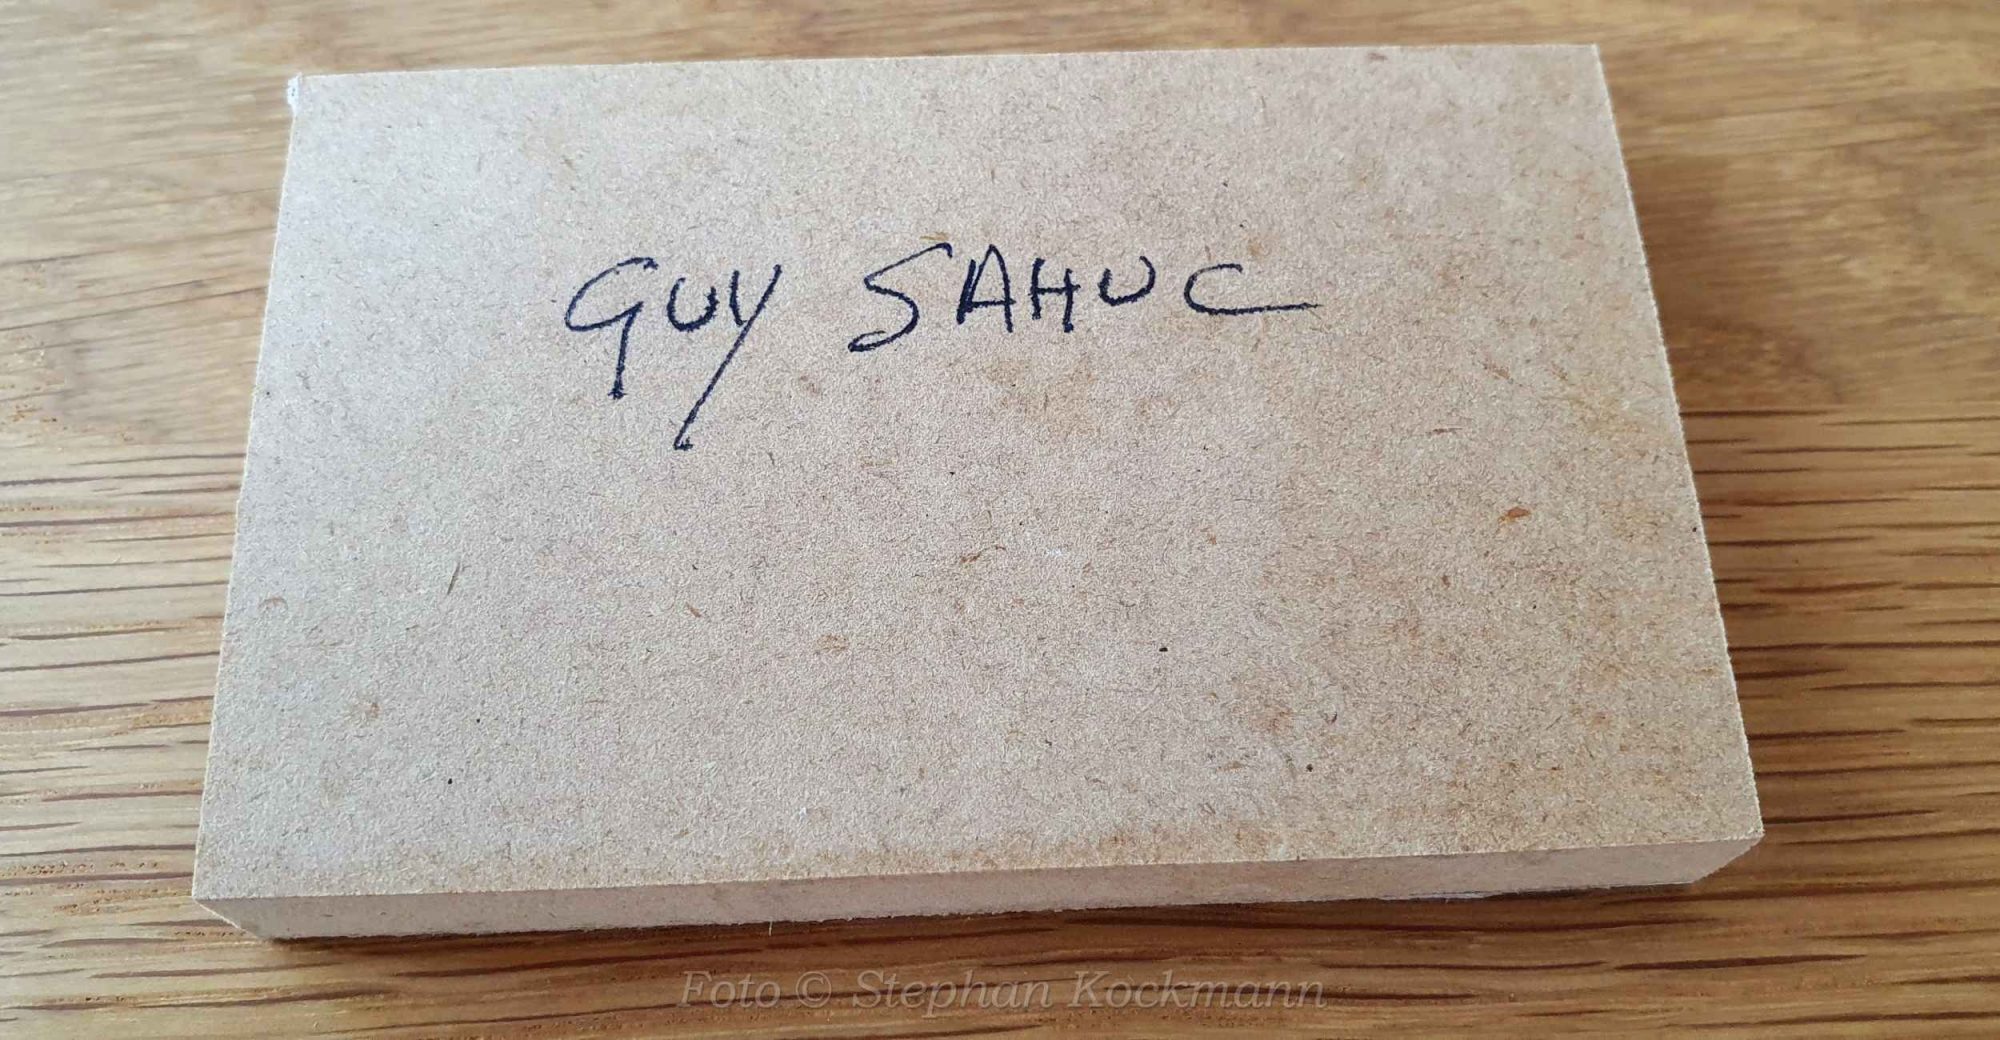 GUY SAHUC
Foto © Stephan Kockmann